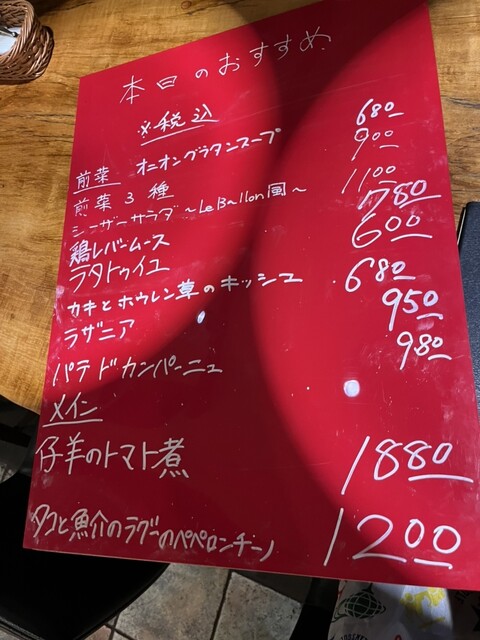 本日のおすすめ
※税込
前菜 オニオングラタンスープ 680
前菜3種 900
シーザーサラダ～Le Ballon風～ 1100
鶏レバームース 780
ラタトゥイユ 600
カキとホウレン草のキッシュ 680
ラザニア 950
パテドカンパーニュ 980
メイン
仔羊のトマト煮 1880
タコと魚介のラグーのペペロンチーノ 1200